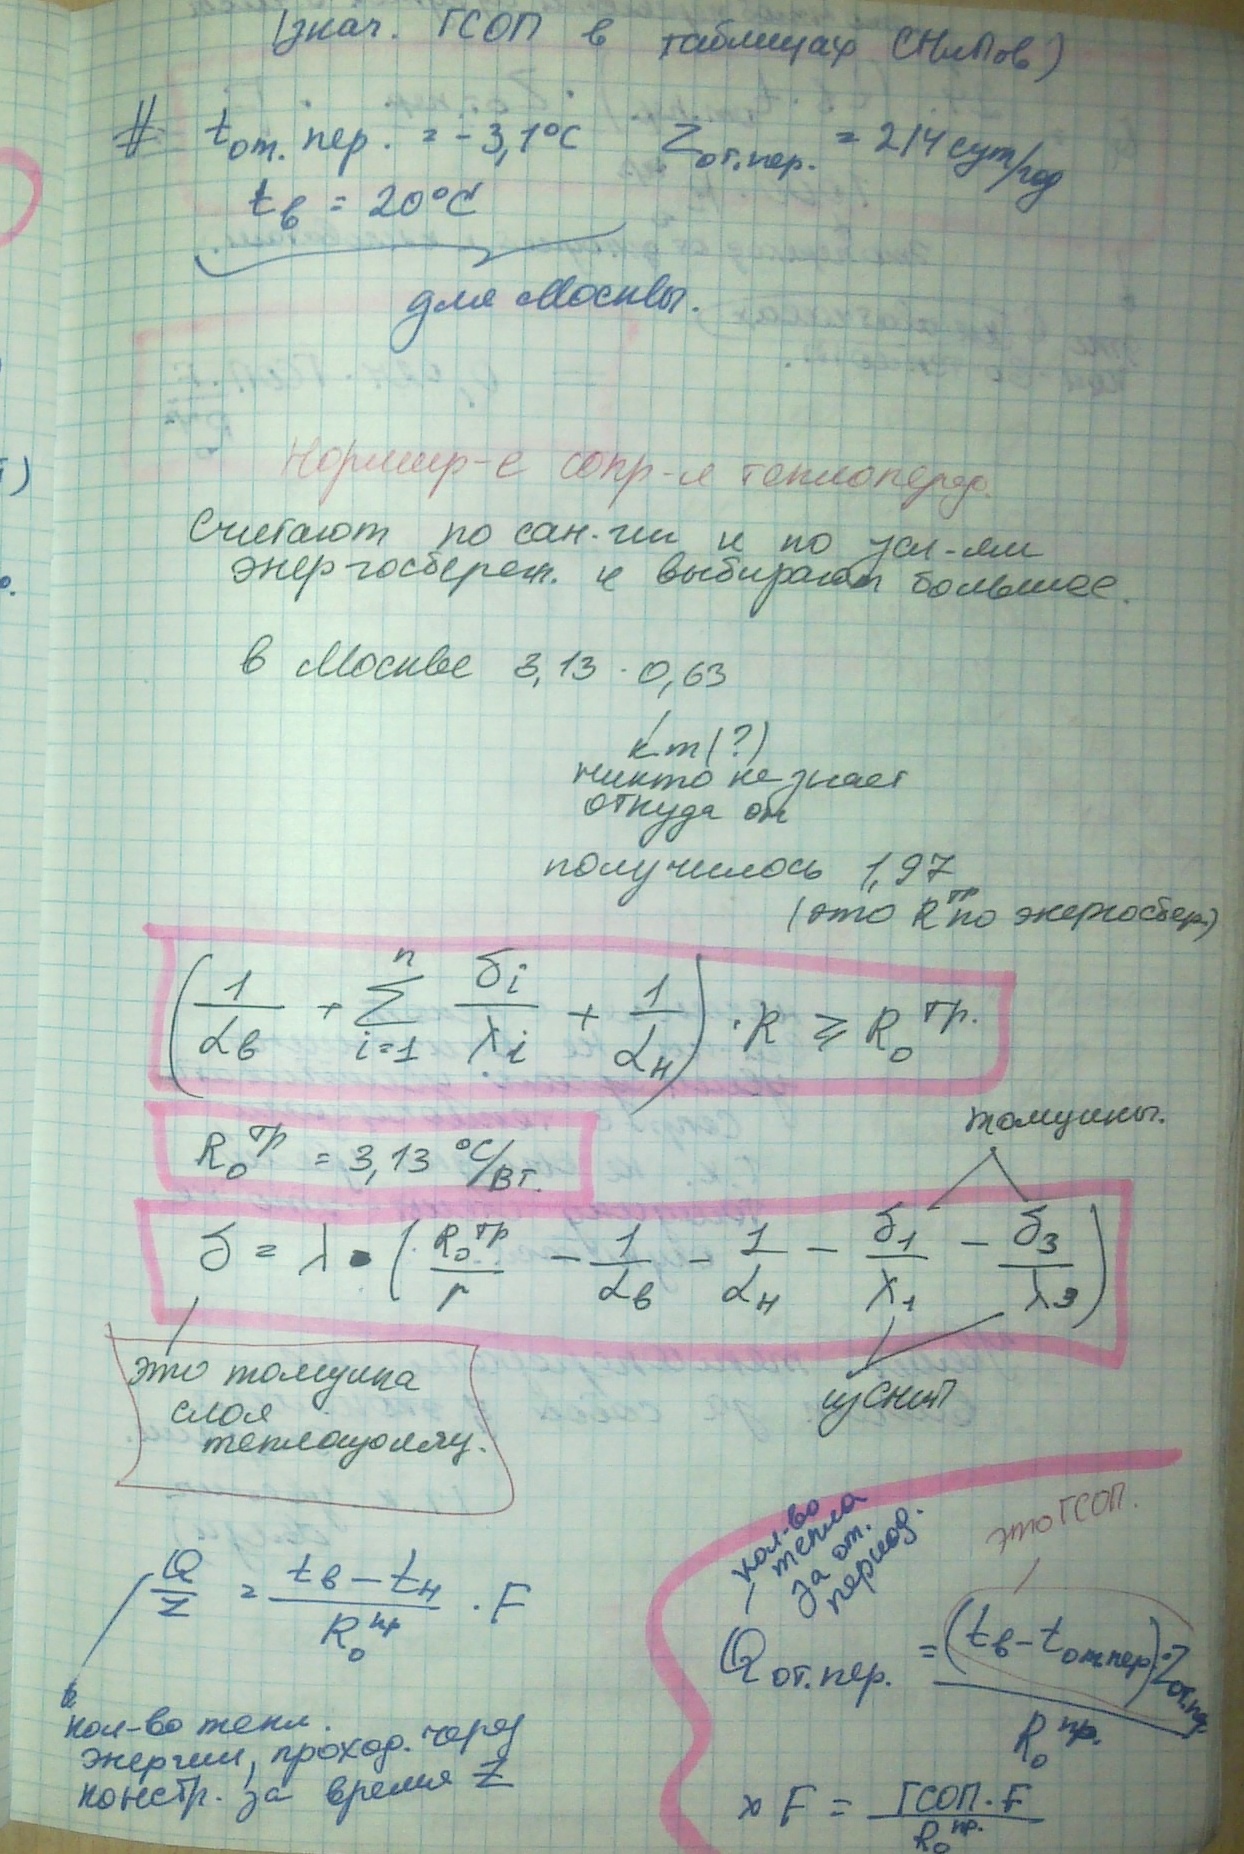 (знач. ГСОП в таблицах СНиПов)
# tот. пер. = -3,1°C Zот.пер. = 214 сут/год
tв = 20°C
для Москвы.
Нормир-е сопр-я теплоперед.
Считают по сан.-гии и по усл-ям
энергосбереж. и выбирают большее.
в Москве 3,13 · 0,63
к.т (?)
никто не знает
откуда он
получилось 1,97
(это Rтр по энергосбер.)
(1/αв + Σ(i=1..n) δi/λi + 1/αн) · R ≥ R₀тр.
R₀тр = 3,13 °C/Вт.
толщины.
δ = λ · (R₀тр/r − 1/αв − 1/αн − δ1/λ1 − δ3/λ3)
из СНиП
это толщина
слоя
теплоизоляц.
Q/z = (tв − tн)/R₀пр · F
кол-во тепл.
энергии, проход. через
констр. за время Z
кол-во
тепла
за от.
период.
это ГСОП.
Qот.пер. = (tв − tот.пер.)·Zот.пер./R₀пр.
× F = ГСОП · F/R₀пр.